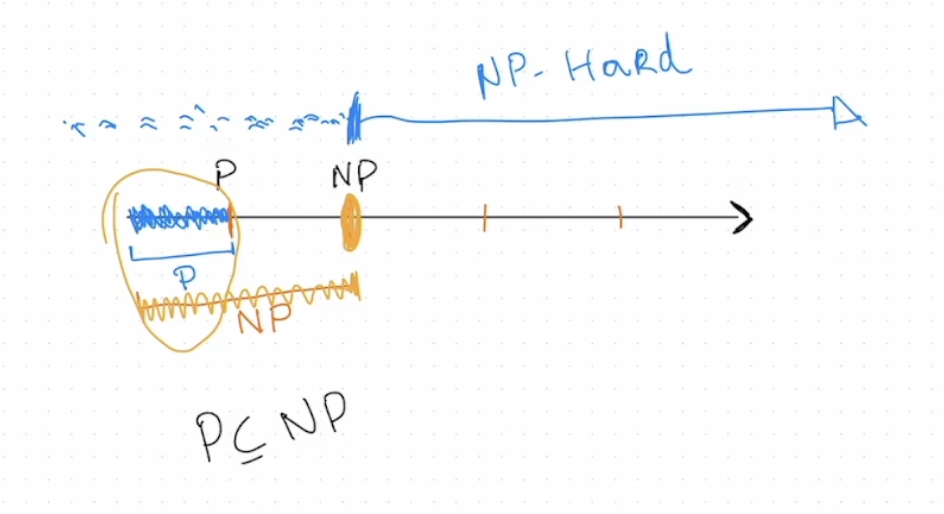 NP-Hard
P NP
P
NP
P⊆NP